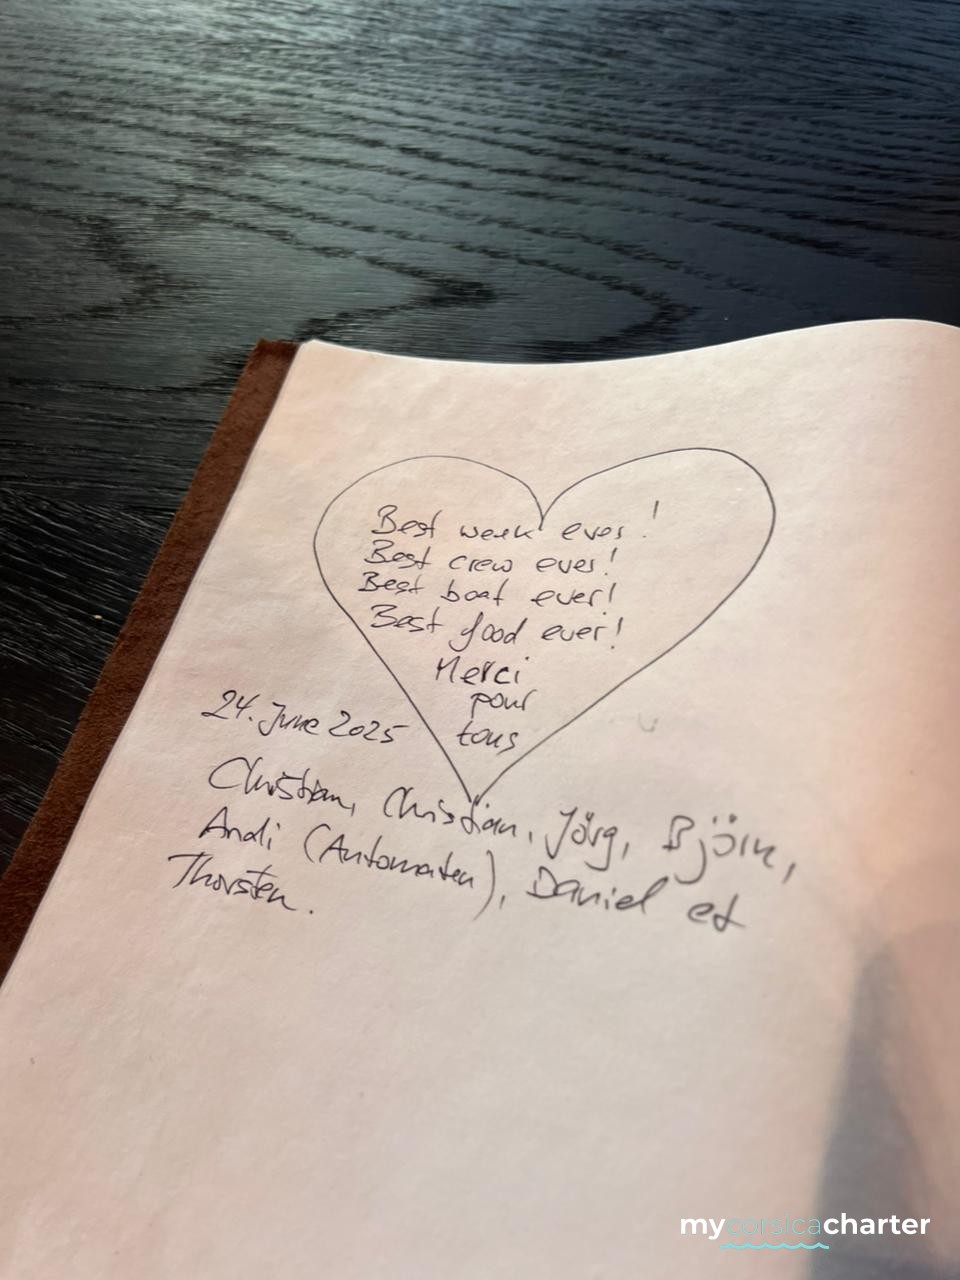 Best week ever!
Best crew ever!
Best boat ever!
Best food ever!
Merci
pour
tous
24. June 2025
Christian, Christian, Jörg, Björn,
Andi (Automaten), Daniel et
Thorsten.
mycorsicacharter